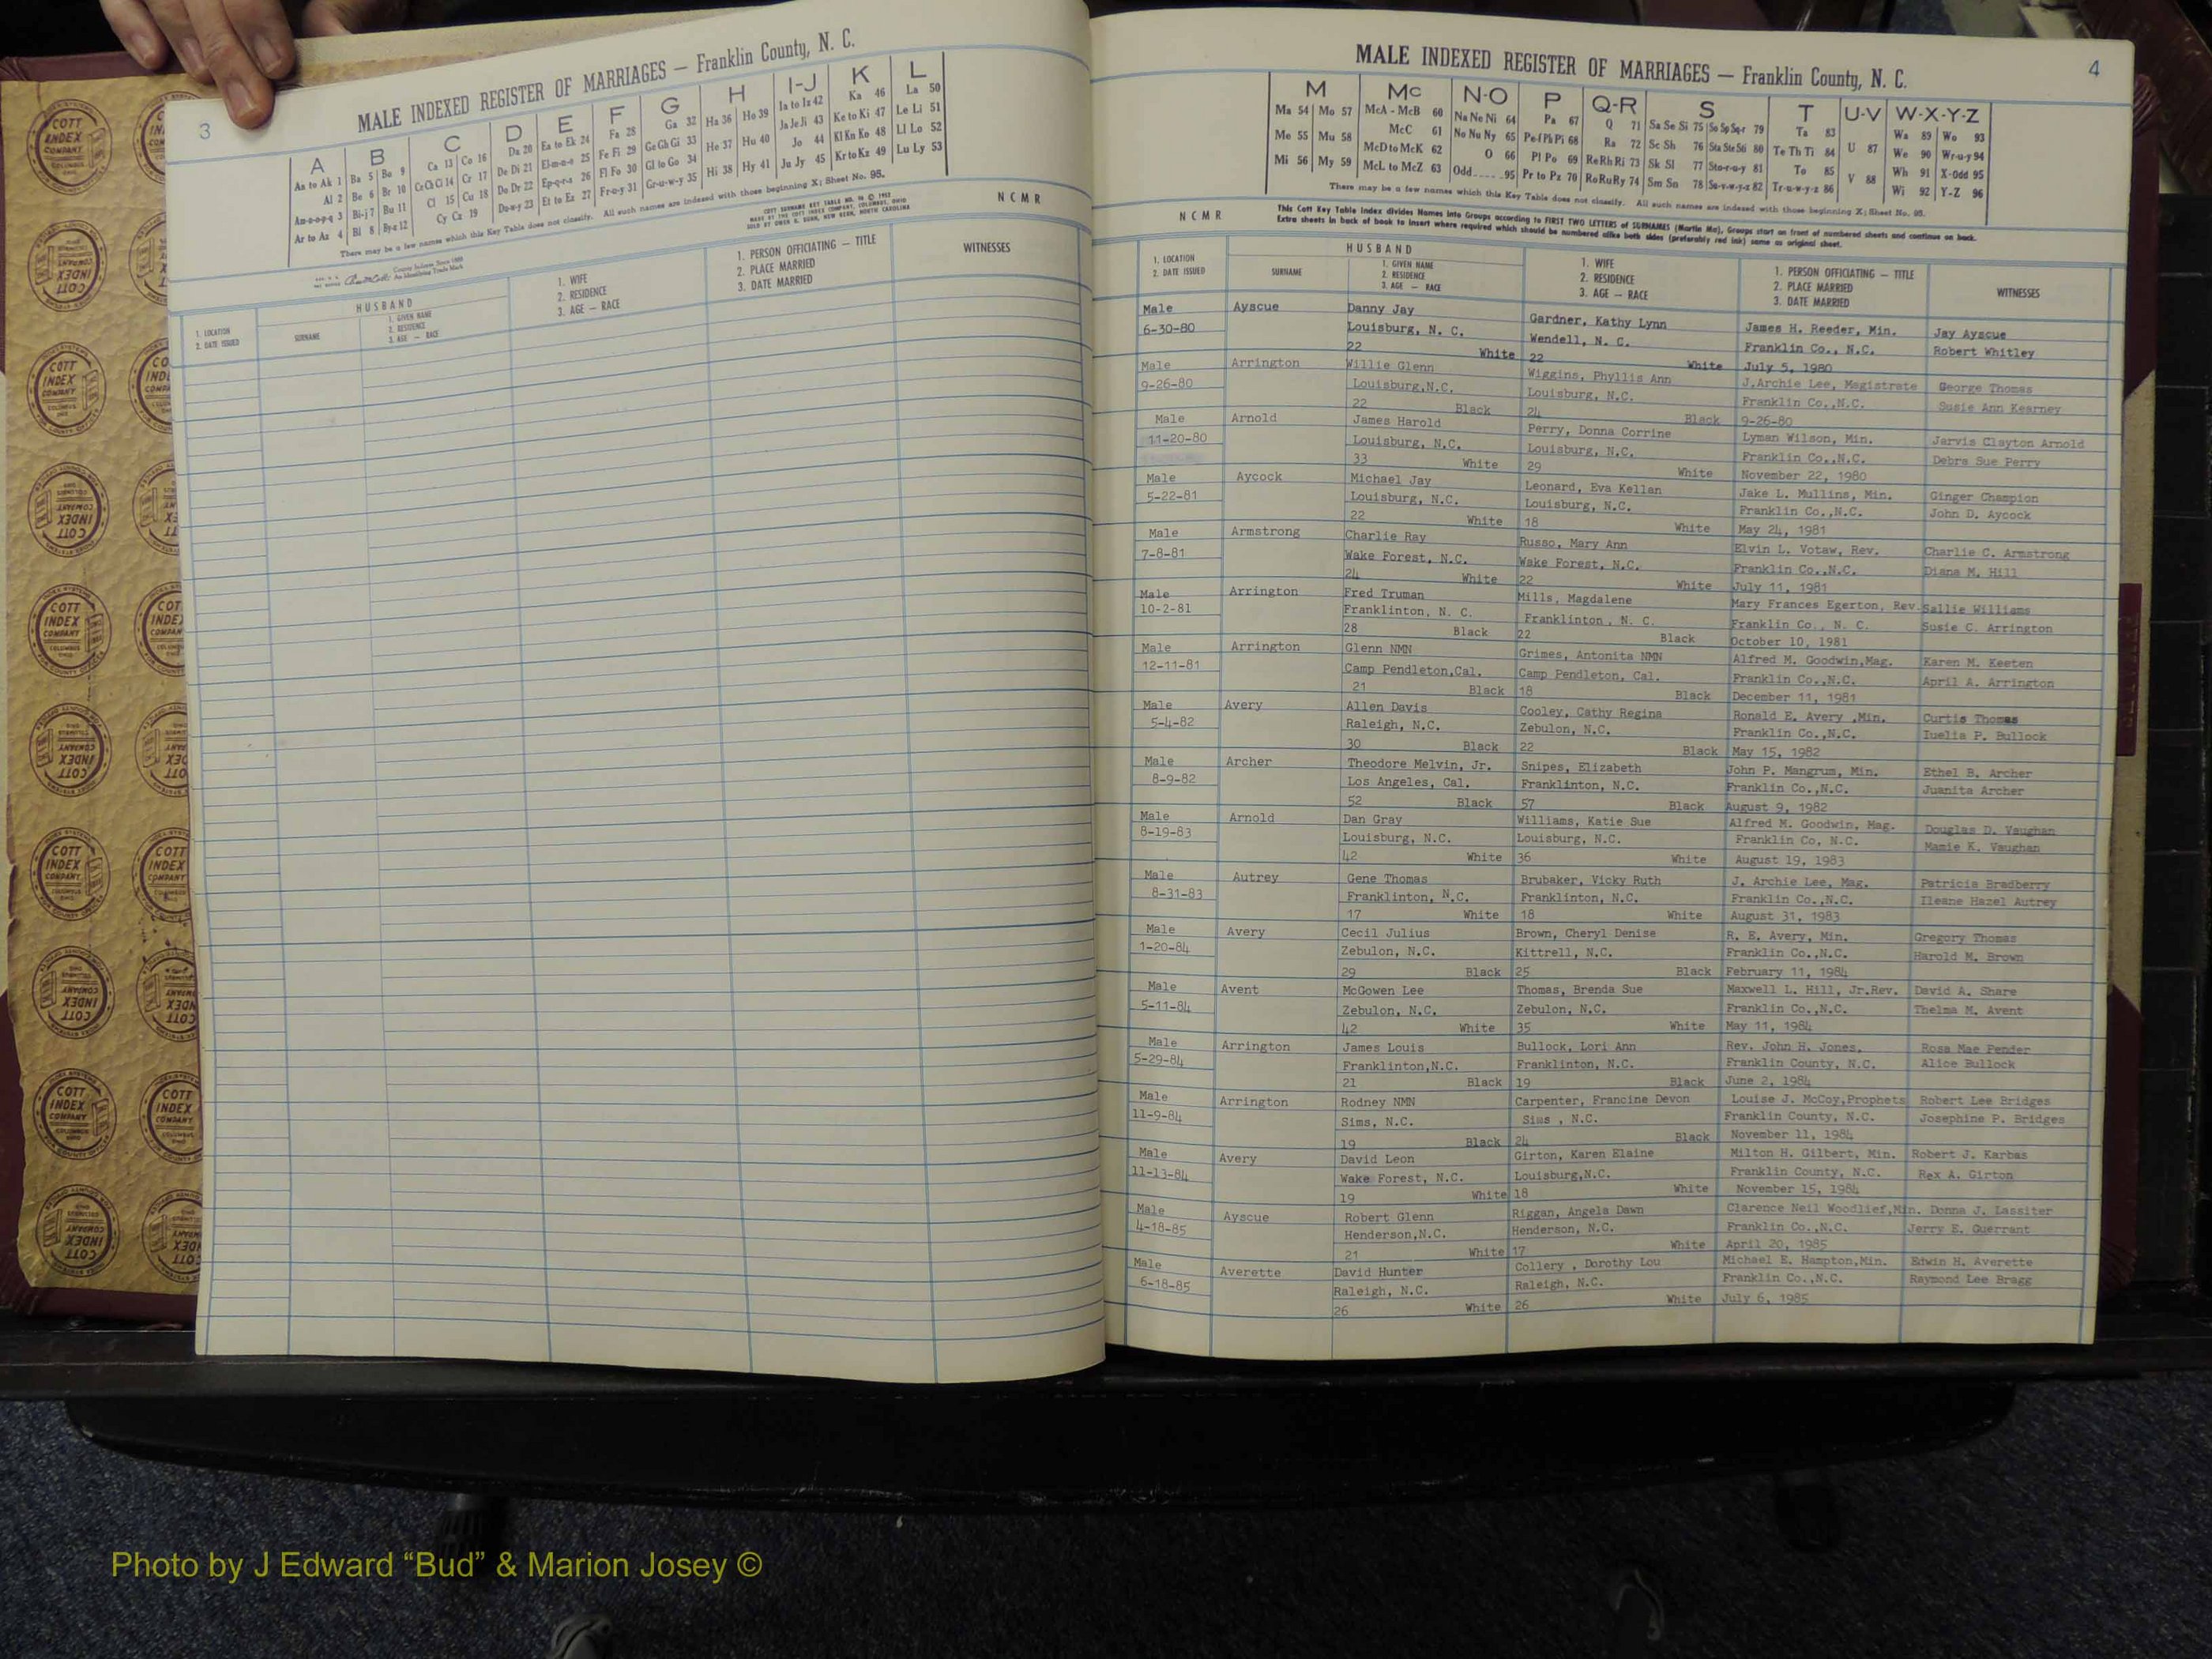 3
MALE INDEXED REGISTER OF MARRIAGES — Franklin County, N. C.
A B C D E F G H I-J K L
Aa to Ak 1 Ba 5 Bo 9 Ca 13 Co 16 Da 20 Ea to Ek 24 Fa 28 Ga 32 Ha 36 Ho 39 Ia to Iz 42 Ka 46 La 50
Al 2 Be 6 Br 10 Ce Ch Ci 14 Cr 17 De Di 21 El-m-n-o 25 Fe Fi 29 Ge Gh Gi 33 He 37 Hu 40 Ja Je Ji 43 Ke to Ki 47 Le Li 51
Am-n-o-p-q 3 Bi-j 7 Bu 11 Cl 15 Cu 18 Do Dr 22 Ep-q-r-s 26 Fl Fo 30 Gl to Go 34 Hi 38 Hy 41 Jo 44 Kl Kn Ko 48 Ll Lo 52
Ar to Az 4 Bl 8 By-z 12 Cy Cz 19 Du-w-y 23 Et to Ez 27 Fr-u-y 31 Gr-u-w-y 35 Ju Jy 45 Kr to Kz 49 Lu Ly 53
There may be a few names which this Key Table does not classify. All such names are indexed with those beginning X; Sheet No. 95.
COTT SURNAME KEY TABLE NO.
MADE BY THE COTT INDEX COMPANY, COLUMBUS, OHIO
SOLD BY OWEN G. DUNN, NEW BERN, NORTH CAROLINA
N C M R
HUSBAND
1. LOCATION
2. DATE ISSUED
SURNAME
1. GIVEN NAME
2. RESIDENCE
3. AGE — RACE
1. WIFE
2. RESIDENCE
3. AGE — RACE
1. PERSON OFFICIATING — TITLE
2. PLACE MARRIED
3. DATE MARRIED
WITNESSES
4
MALE INDEXED REGISTER OF MARRIAGES — Franklin County, N. C.
M Mc N-O P Q-R S T U-V W-X-Y-Z
Ma 54 Mo 57 McA - McB 60 Na Ne Ni 64 Pa 67 Q 71 Sa Se Si 75 So Sp Sq-r 79 Ta 83 U 87 Wa 89 Wo 93
Me 55 Mu 58 McC 61 No Nu Ny 65 Pe-f Ph Pi 68 Ra 72 Sc Sh 76 Sta Ste Sti 80 Te Th Ti 84 V 88 We 90 Wr-u-y 94
Mi 56 My 59 McD to McK 62 O 66 Pl Po 69 Re Rh Ri 73 Sk Sl 77 Sto-r-u-y 81 To 85 Wh 91 X-Odd 95
McL to McZ 63 Odd 95 Pr to Pz 70 Ro Ru Ry 74 Sm Sn 78 Su-v-w-y-z 82 Tr-u-w-y-z 86 Wi 92 Y-Z 96
There may be a few names which this Key Table does not classify. All such names are indexed with those beginning X; Sheet No. 95.
This Cott Key Table Index divides Names into Groups according to FIRST TWO LETTERS of SURNAMES (Martin Ma), Groups start on front of numbered sheets and continue on back.
Extra sheets in back of book to insert where required which should be numbered alike both sides (preferably red ink) same as original sheet.
N C M R
HUSBAND
1. LOCATION
2. DATE ISSUED
SURNAME
1. GIVEN NAME
2. RESIDENCE
3. AGE — RACE
1. WIFE
2. RESIDENCE
3. AGE — RACE
1. PERSON OFFICIATING — TITLE
2. PLACE MARRIED
3. DATE MARRIED
WITNESSES
Male Ayscue Danny Jay Gardner, Kathy Lynn James H. Reeder, Min. Jay Ayscue
6-30-80 Louisburg, N. C. Wendell, N. C. Franklin Co., N.C. Robert Whitley
22 White 22 White July 5, 1980
Male Arrington Willie Glenn Wiggins, Phyllis Ann J.Archie Lee, Magistrate George Thomas
9-26-80 Louisburg,N.C. Louisburg, N.C. Franklin Co.,N.C. Susie Ann Kearney
22 Black 24 Black 9-26-80
Male Arnold James Harold Perry, Donna Corrine Lyman Wilson, Min. Jarvis Clayton Arnold
11-20-80 Louisburg, N.C. Louisburg, N.C. Franklin Co.,N.C. Debra Sue Perry
33 White 29 White November 22, 1980
Male Aycock Michael Jay Leonard, Eva Kellan Jake L. Mullins, Min. Ginger Champion
5-22-81 Louisburg, N.C. Louisburg, N.C. Franklin Co.,N.C. John D. Aycock
22 White 18 White May 24, 1981
Male Armstrong Charlie Ray Russo, Mary Ann Elvin L. Votaw, Rev. Charlie C. Armstrong
7-8-81 Wake Forest, N.C. Wake Forest, N.C. Franklin Co.,N.C. Diana M. Hill
24 White 22 White July 11, 1981
Male Arrington Fred Truman Mills, Magdalene Mary Frances Egerton, Rev. Sallie Williams
10-2-81 Franklinton, N. C. Franklinton, N. C. Franklin Co., N. C. Susie C. Arrington
28 Black 22 Black October 10, 1981
Male Arrington Glenn NMN Grimes, Antonita NMN Alfred M. Goodwin,Mag. Karen M. Keeten
12-11-81 Camp Pendleton,Cal. Camp Pendleton, Cal. Franklin Co.,N.C. April A. Arrington
21 Black 18 Black December 11, 1981
Male Avery Allen Davis Cooley, Cathy Regina Ronald E. Avery ,Min. Curtis Thomas
5-4-82 Raleigh, N.C. Zebulon, N.C. Franklin Co.,N.C. Iuelia P. Bullock
30 Black 22 Black May 15, 1982
Male Archer Theodore Melvin, Jr. Snipes, Elizabeth John P. Mangrum, Min. Ethel B. Archer
8-9-82 Los Angeles, Cal. Franklinton, N.C. Franklin Co.,N.C. Juanita Archer
52 Black 57 Black August 9, 1982
Male Arnold Dan Gray Williams, Katie Sue Alfred M. Goodwin, Mag. Douglas D. Vaughan
8-19-83 Louisburg, N.C. Louisburg, N.C. Franklin Co, N.C. Mamie K. Vaughan
42 White 36 White August 19, 1983
Male Autrey Gene Thomas Brubaker, Vicky Ruth J. Archie Lee, Mag. Patricia Bradberry
8-31-83 Franklinton, N.C. Franklinton, N.C. Franklin Co.,N.C. Ileane Hazel Autrey
17 White 18 White August 31, 1983
Male Avery Cecil Julius Brown, Cheryl Denise R. E. Avery, Min. Gregory Thomas
1-20-84 Zebulon, N.C. Kittrell, N.C. Franklin Co.,N.C. Harold M. Brown
29 Black 25 Black February 11, 1984
Male Avent McGowen Lee Thomas, Brenda Sue Maxwell L. Hill, Jr.Rev. David A. Share
5-11-84 Zebulon, N.C. Zebulon, N.C. Franklin Co.,N.C. Thelma M. Avent
42 White 35 White May 11, 1984
Male Arrington James Louis Bullock, Lori Ann Rev. John H. Jones, Rosa Mae Pender
5-29-84 Franklinton,N.C. Franklinton, N.C. Franklin County, N.C. Alice Bullock
21 Black 19 Black June 2, 1984
Male Arrington Rodney NMN Carpenter, Francine Devon Louise J. McCoy,Prophets Robert Lee Bridges
11-9-84 Sims, N.C. Sims , N.C. Franklin County, N.C. Josephine P. Bridges
19 Black 24 Black November 11, 1984
Male Avery David Leon Girton, Karen Elaine Milton H. Gilbert, Min. Robert J. Karbas
11-13-84 Wake Forest, N.C. Louisburg,N.C. Franklin County, N.C. Rex A. Girton
19 White 18 White November 15, 1984
Male Ayscue Robert Glenn Riggan, Angela Dawn Clarence Neil Woodlief,Min. Donna J. Lassiter
4-18-85 Henderson,N.C. Henderson, N.C. Franklin Co.,N.C. Jerry E. Guerrant
21 White 17 White April 20, 1985
Male Averette David Hunter Collery , Dorothy Lou Michael E. Hampton,Min. Edwin H. Averette
6-18-85 Raleigh, N.C. Raleigh, N.C. Franklin Co.,N.C. Raymond Lee Bragg
26 White 26 White July 6, 1985
COTT INDEX COMPANY
Photo by J Edward “Bud” & Marion Josey ©